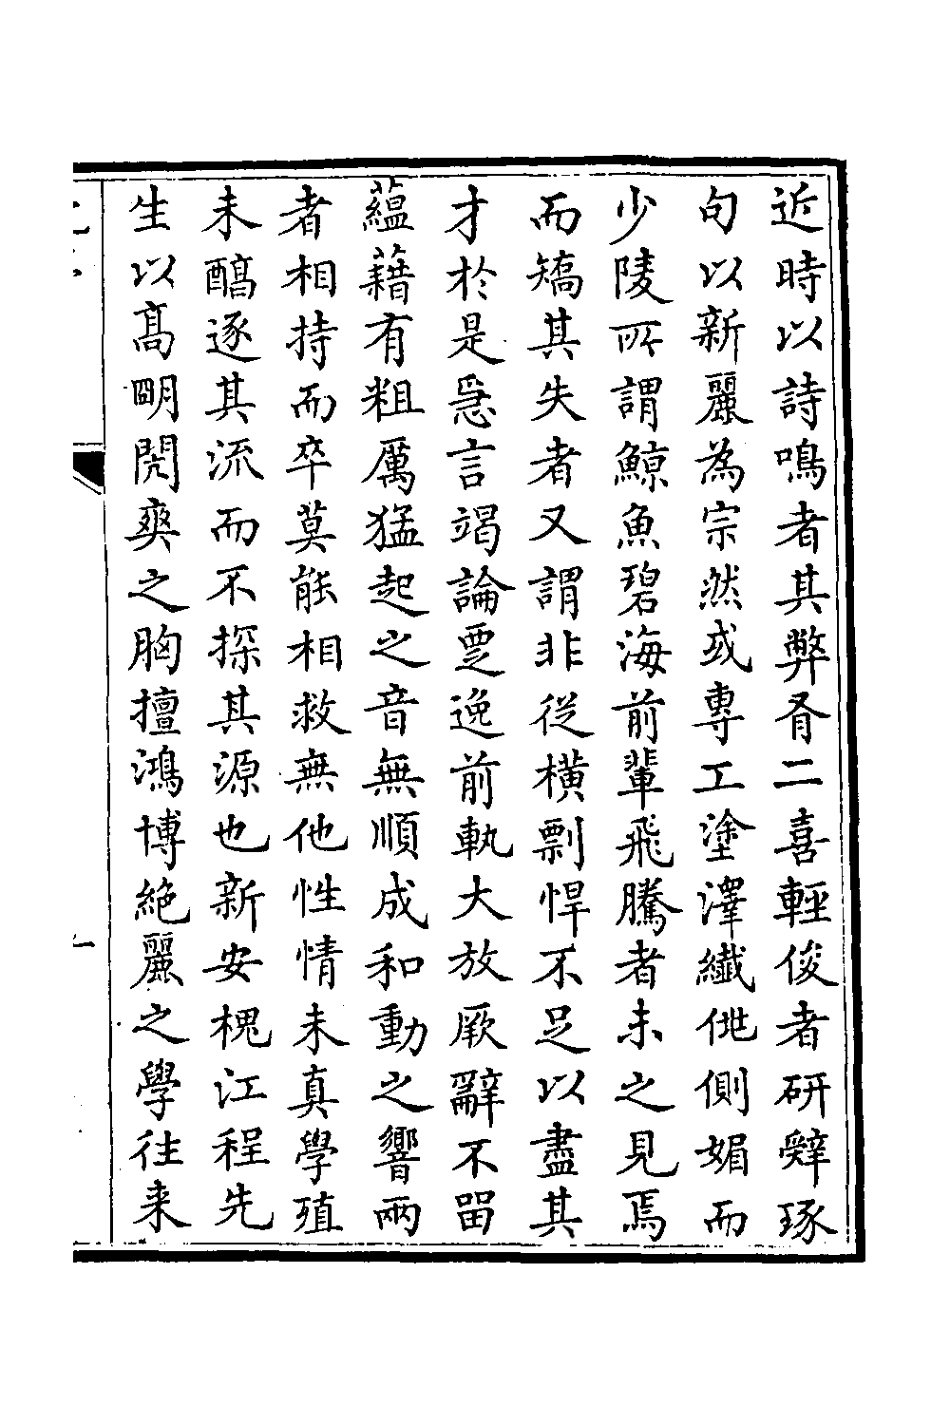 近時以詩鳴者其弊有二喜輕俊者研辭琢
句以新麗為宗然或專工塗澤纖佻側媚而
少陵所謂鯨魚碧海前輩飛騰者未之見焉
而矯其失者又謂非從橫剽悍不足以盡其
才於是危言竭論要逸前軌大放厥辭不留
蘊藉有粗厲猛起之音無順成和動之響兩
者相持而卒莫能相救無他性情未真學殖
未醇逐其流而不探其源也新安槐江程先
生以高明閎爽之胸擅鴻博絕麗之學往来